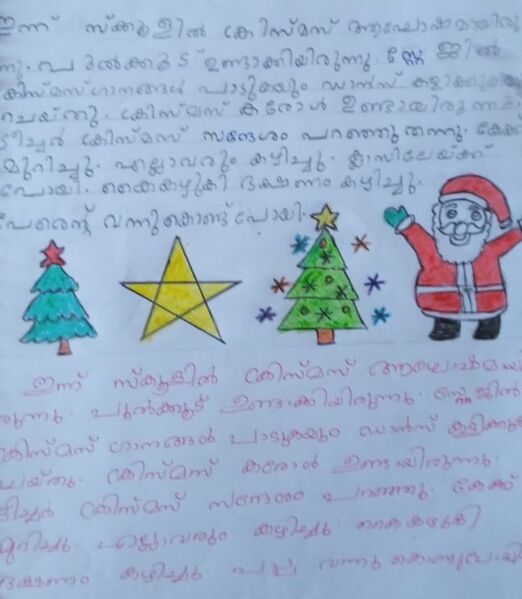 ഇന്ന് സ്കൂളിൽ ക്രിസ്മസ് ആഘോഷമായിരു
ന്നു. പുൽക്കൂട് ഉണ്ടാക്കിയിരുന്നു. സ്റ്റേജിൽ
ക്രിസ്മസ് ഗാനങ്ങൾ പാടുകയും ഡാൻസ് കളിക്കുകയും
ചെയ്തു. ക്രിസ്മസ് കരോൾ ഉണ്ടായിരുന്നു.
ടീച്ചർ ക്രിസ്മസ് സന്ദേശം പറഞ്ഞു തന്നു. കേക്ക്
മുറിച്ചു. എല്ലാവരും കഴിച്ചു. ക്ലാസിലേയ്ക്ക്
പോയി. കൈകഴുകി ഭക്ഷണം കഴിച്ചു.
പേരെന്റ് വന്നു കൊണ്ട് പോയി.
ഇന്ന് സ്കൂളിൽ ക്രിസ്മസ് ആഘോഷമായി
രുന്നു. പുൽക്കൂട് ഉണ്ടാക്കിയിരുന്നു. സ്റ്റേജിൽ
ക്രിസ്മസ് ഗാനങ്ങൾ പാടുകയും ഡാൻസ് കളിക്കു
ചെയ്തു. ക്രിസ്മസ് കരോൾ ഉണ്ടായിരുന്നു.
ടീച്ചർ ക്രിസ്മസ് സന്ദേശം പറഞ്ഞു. കേക്ക്
മുറിച്ചു. എല്ലാവരും കഴിച്ചു. കൈകഴുകി
ഭക്ഷണം കഴിച്ചു. പപ്പ വന്നു കൊണ്ടുപോയി